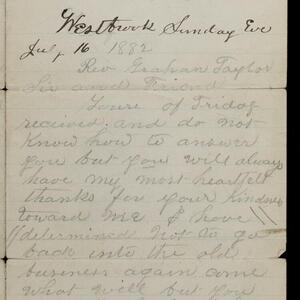 Westbrook Sunday Eve
July 16 1882
Rev Graham Taylor
Sir and Friend
Yours of Friday
recieved and do not
know how to answer
you but you will always
have my most heartfelt
thanks for your kindness
toward me I have
determined not to go
back into the old
business again come
what will but you